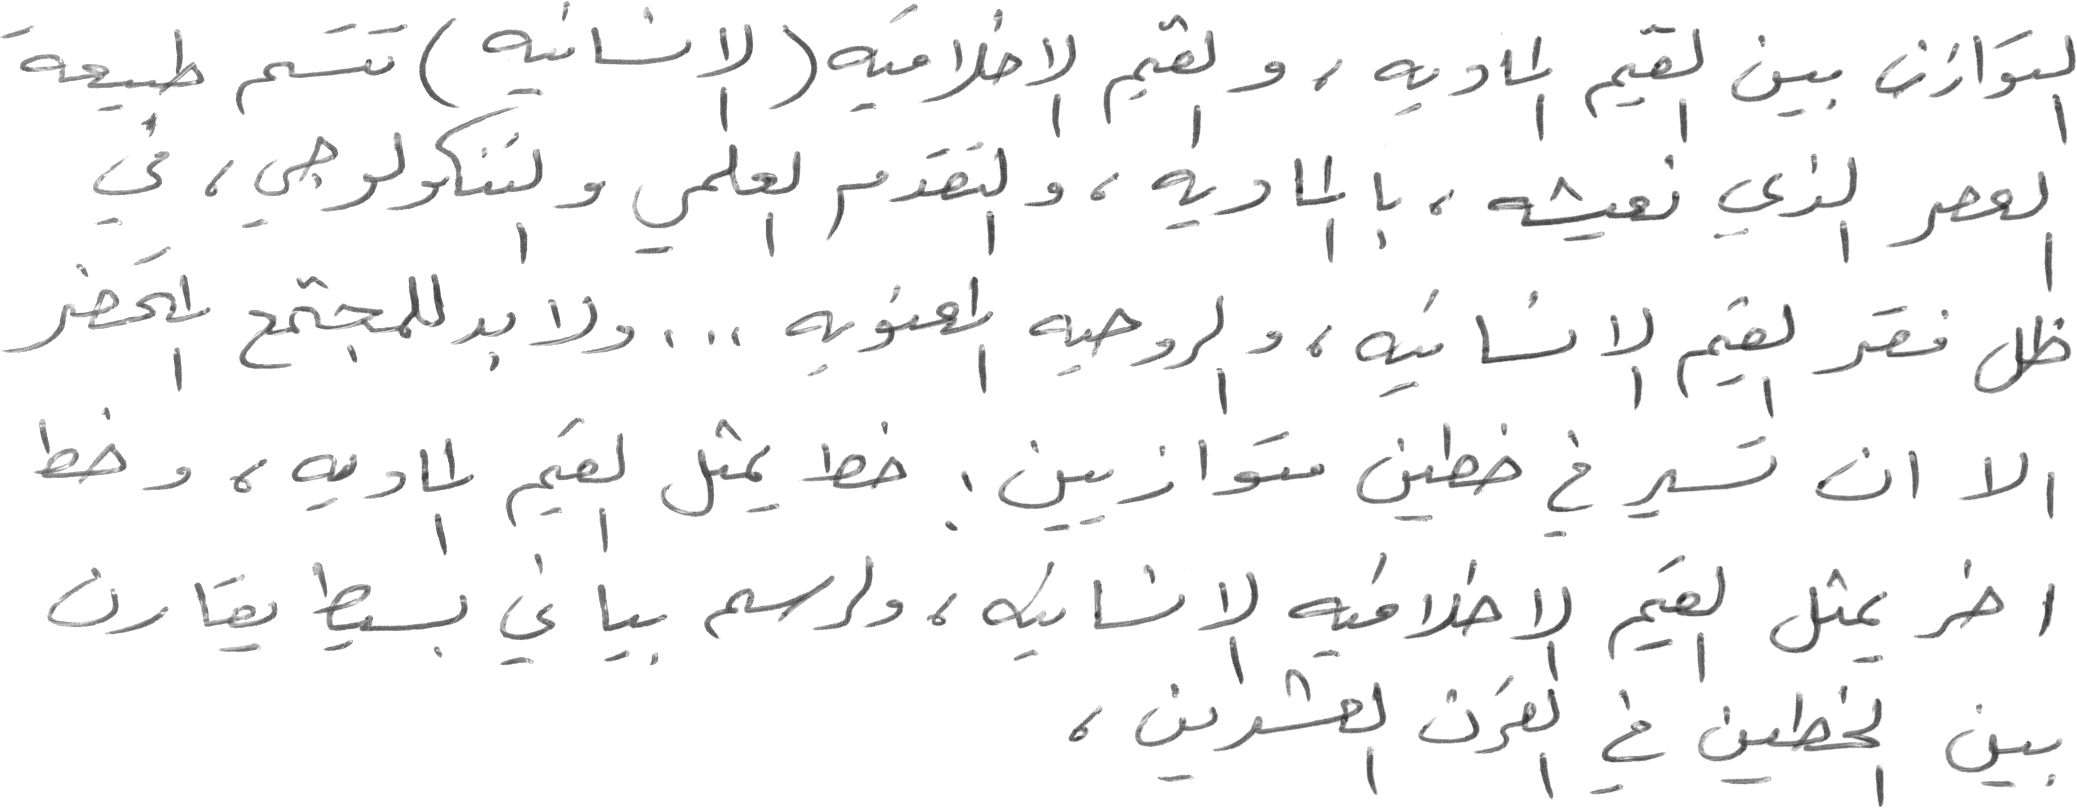 التوازن بين القيم الماديه ، والقيم الاخلاقيه (الانسانيه) تتسم طبيعة
العصر الذي نعيشه ، بالماديه ، والتقدم العلمي والتنكولوجي ، في
ظل فقد القيم الانسانيه ، والروحيه المعنويه ... ولا بد للمجتمع المحضر
الا ان تسير في خطين متوازيين : خط يمثل القيم الماديه ، وخط
اخر يمثل القيم الاخلاقيه الانسانيه ، ولرسم بياني بسيط يقارن
بين الخطين في القرن العشرين ،